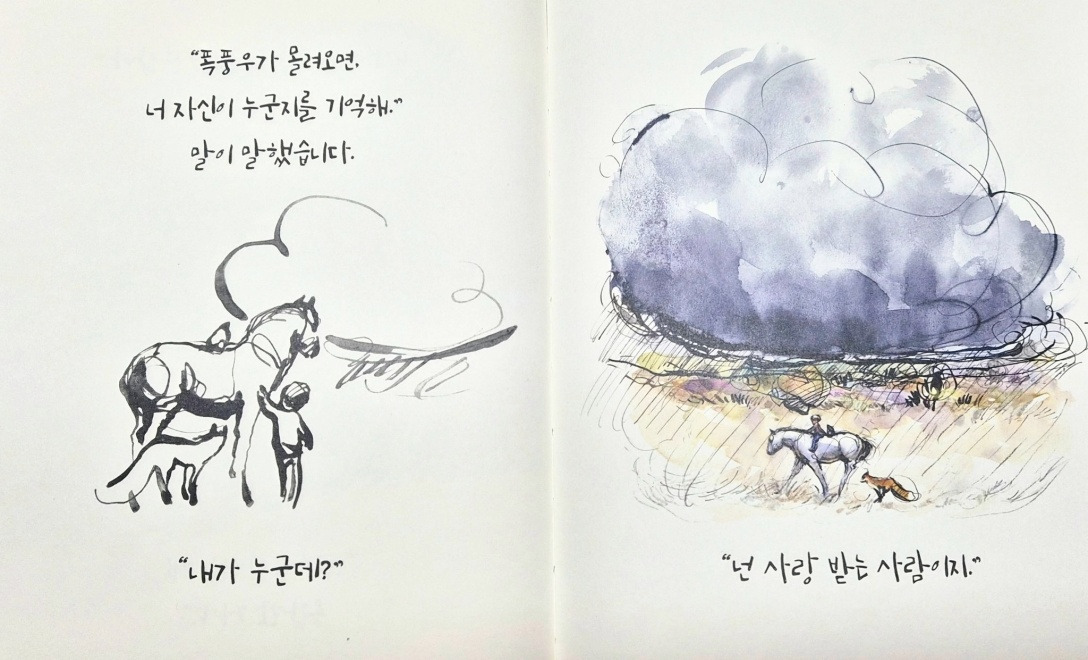 “폭풍우가 몰려오면,
너 자신이 누군지를 기억해.”
말이 말했습니다.
“내가 누군데?”
“넌 사랑 받는 사람이지.”